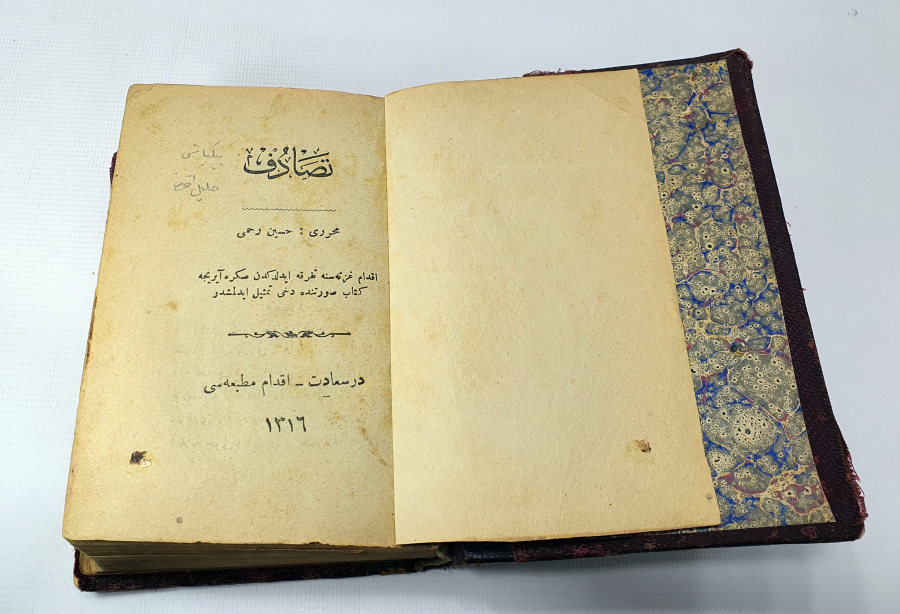 تصادف
محرری : حسین رحمی
اقدام غزته‌سنه تفرقه ایدلدكدن صكره آیریجه
كتاب صورتنده دخی تمثیل ایدلمشدر
درسعادت ـ اقدام مطبعه‌سی
١٣١٦
بیكباشی
خلیل